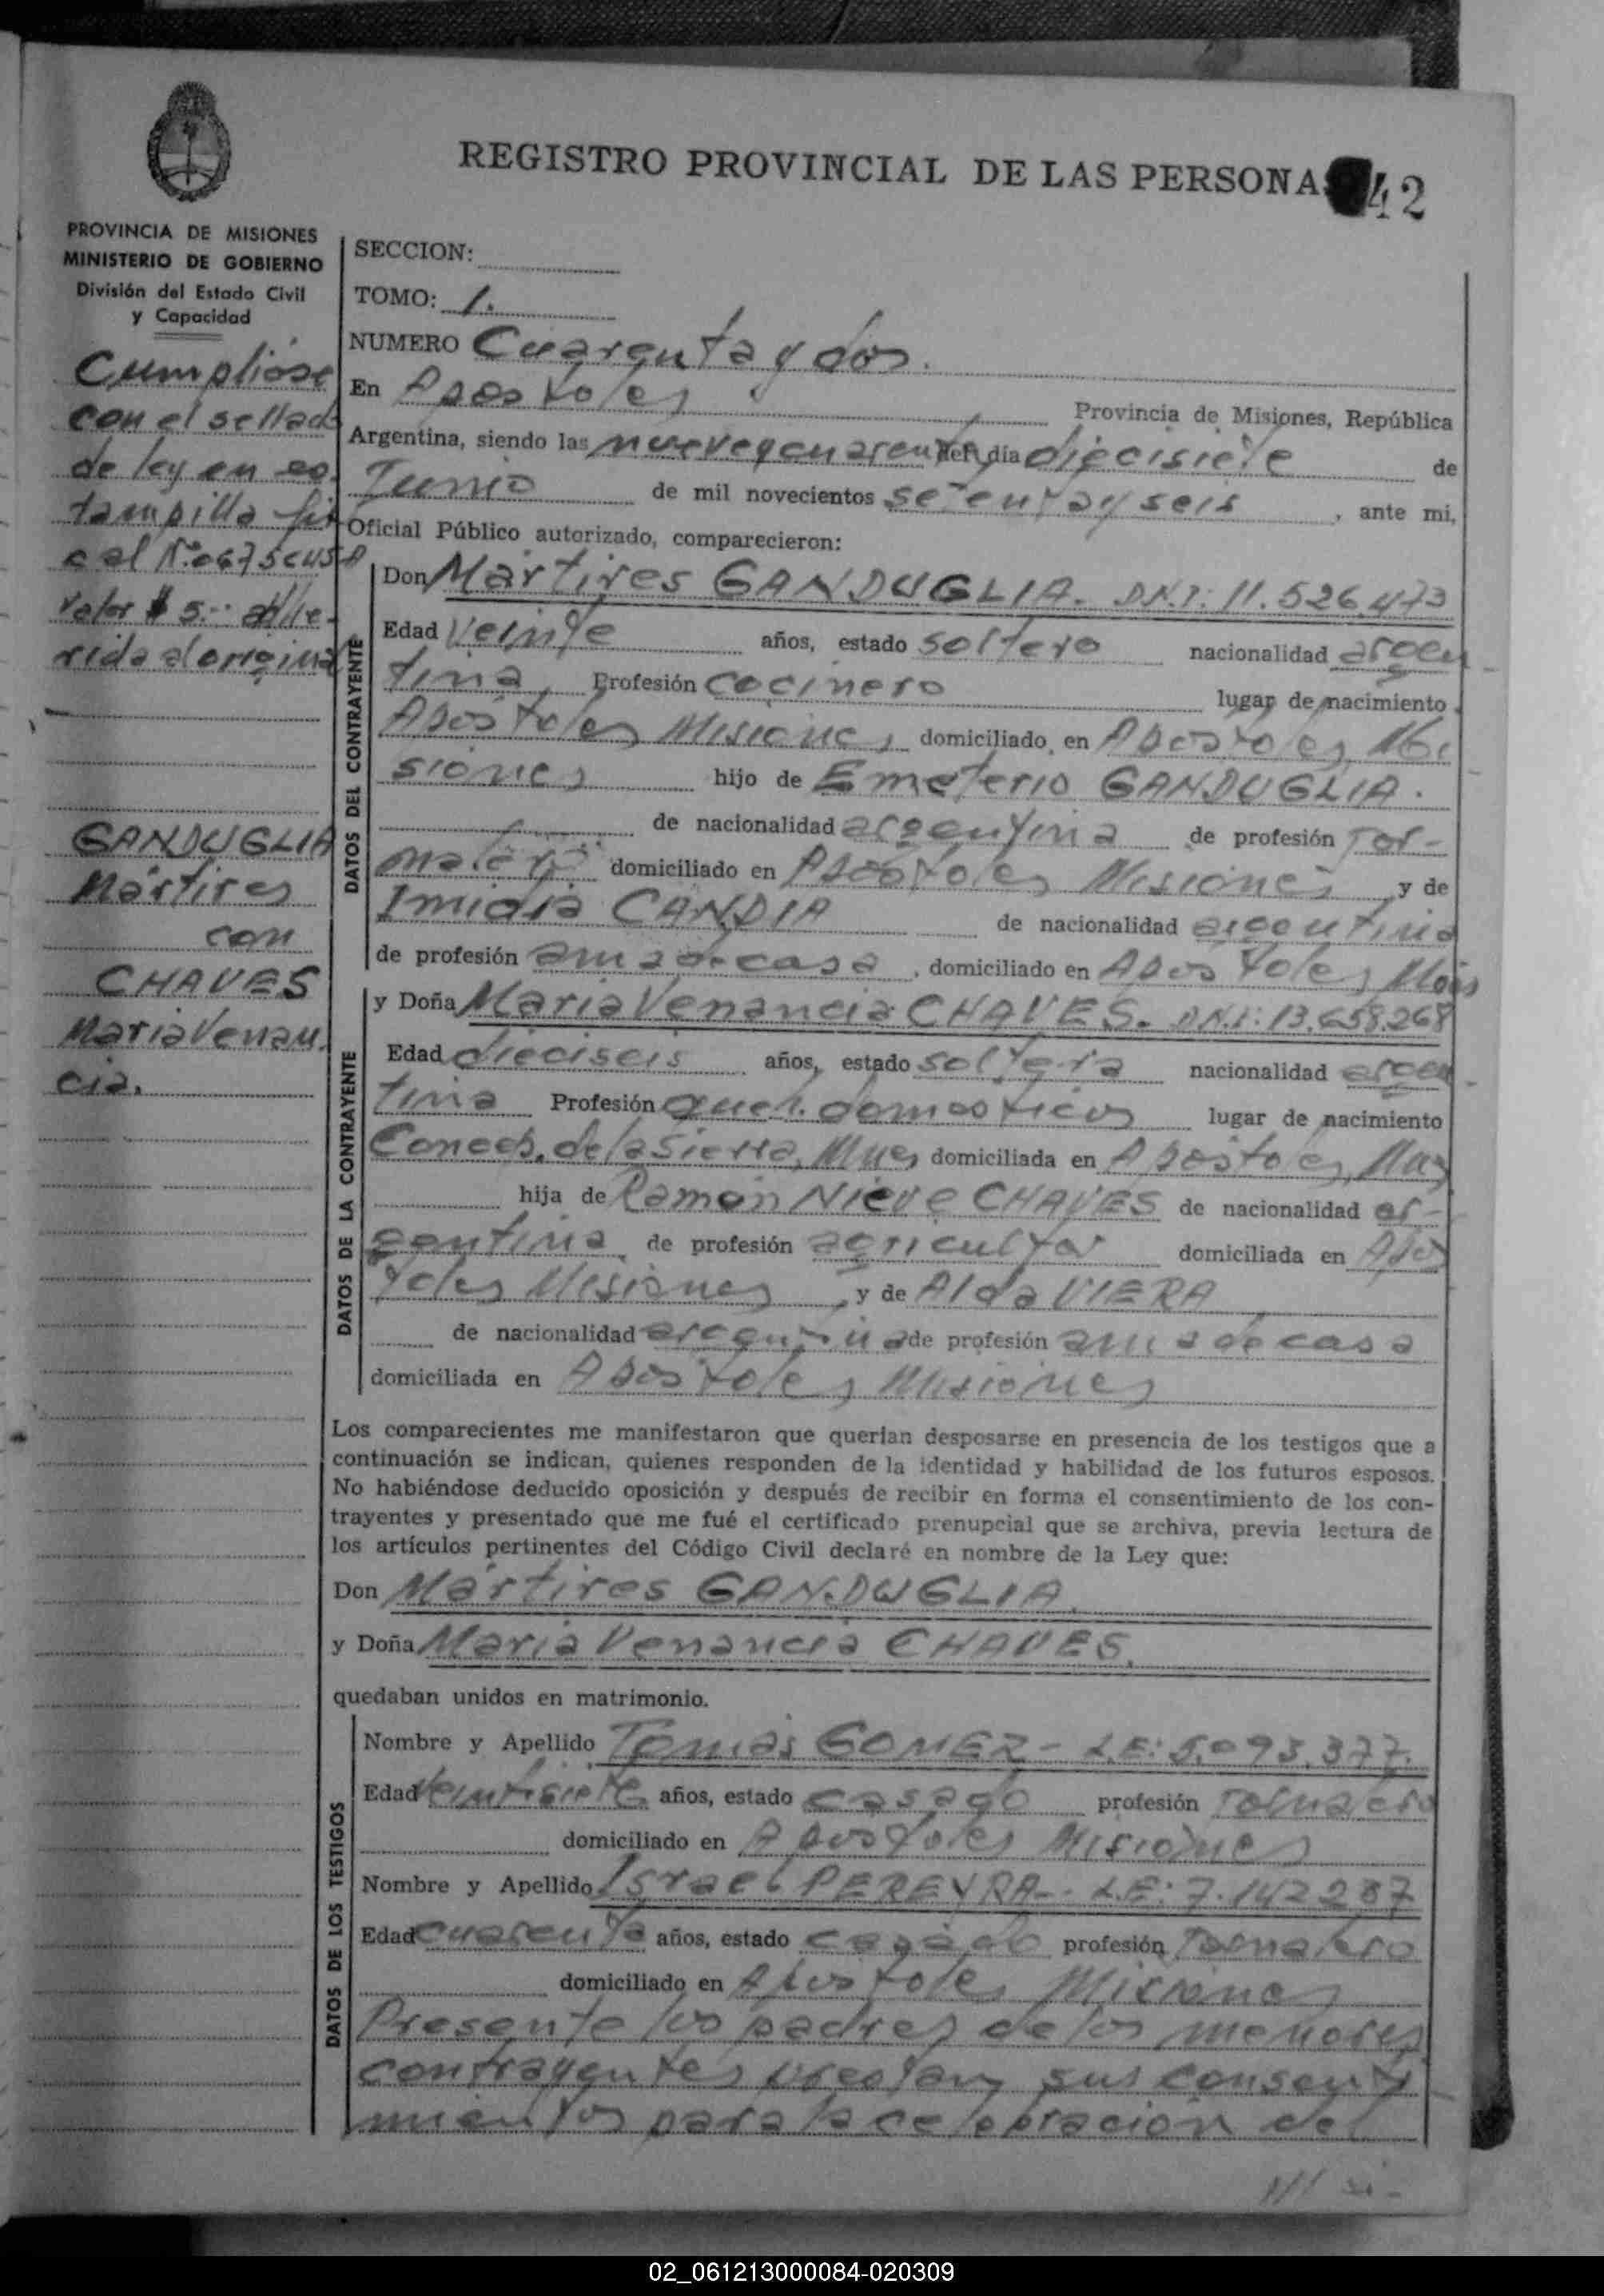 REGISTRO PROVINCIAL DE LAS PERSONAS 42
PROVINCIA DE MISIONES
MINISTERIO DE GOBIERNO
División del Estado Civil
y Capacidad
Cumplióse
con el sellado
de ley en es
tampilla fis
cal Nº
valor $ 5.- adhe-
rida al original
GANDUGLIA
Mártires
con
CHAVES
Maria Venan
cia.
SECCION:
TOMO: 1.
NUMERO Cuarenta y dos.
En Apostoles Provincia de Misiones, República
Argentina, siendo las nueve y cuarenta del día diecisiete de
Junio de mil novecientos setenta y seis, ante mi,
Oficial Público autorizado, comparecieron:
DATOS DEL CONTRAYENTE
Don Mártires GANDUGLIA. D.N.I: 11.526.473
Edad veinte años, estado soltero nacionalidad argen-
tina, Profesión cocinero lugar de nacimiento
Apóstoles Misiones domiciliado en Apostoles, Mi
siones hijo de Emeterio GANDUGLIA.
de nacionalidad argentina de profesión Jor-
nalero domiciliado en Apóstoles Misiones y de
CANDIA de nacionalidad argentina
de profesión ama de casa, domiciliado en Apóstoles
DATOS DE LA CONTRAYENTE
y Doña Maria Venancia CHAVES. D.N.I: 13.658.268
Edad dieciseis años, estado soltera nacionalidad argen-
tina Profesión queh. domesticos lugar de nacimiento
Concep. de la Sierra, Mnes domiciliada en Apóstoles, Mnes
hija de Ramón Nieve CHAVES de nacionalidad ar-
gentina de profesión agricultor domiciliada en Apos
toles Misiones, y de Alda VIERA
de nacionalidad argentina de profesión ama de casa
domiciliada en Apóstoles Misiones
Los comparecientes me manifestaron que querían desposarse en presencia de los testigos que a
continuación se indican, quienes responden de la identidad y habilidad de los futuros esposos.
No habiéndose deducido oposición y después de recibir en forma el consentimiento de los con-
trayentes y presentado que me fué el certificado prenupcial que se archiva, previa lectura de
los artículos pertinentes del Código Civil declaré en nombre de la Ley que:
Don Mártires GANDUGLIA.
y Doña Maria Venancia CHAVES.
quedaban unidos en matrimonio.
DATOS DE LOS TESTIGOS
Nombre y Apellido Tomás GOMEZ - L.E: 5.093.377.
Edad veintisiete años, estado casado profesión Jornalero
domiciliado en Apostoles Misiones
Nombre y Apellido Israel PEREYRA.- L.E: 7.142287
Edad cuarenta años, estado casado profesión Jornalero
domiciliado en Apostoles Misiones
Presente los padres de los menores
contrayentes prestan sus consenti-
mientos para la celebración del
02_061213000084-020309